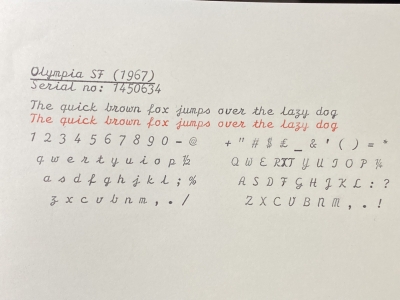 Olympia SF (1967)
Serial no: 1450634
The quick brown fox jumps over the lazy dog
The quick brown fox jumps over the lazy dog
1 2 3 4 5 6 7 8 9 0 - @ + " # $ £ _ & ' ( ) = *
q w e r t y u i o p ½ Q W E R T Y U I O P ¼
a s d f g h j k l ; % A S D F G H J K L : ?
z x c v b n m , . / Z X C V B N M , . !